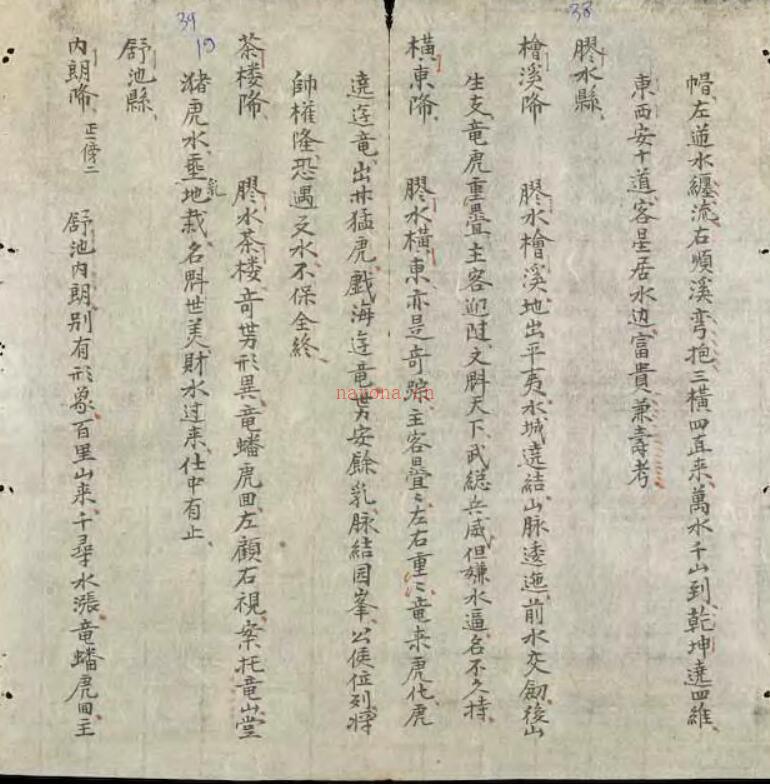 38
39
19
幔左道水纏流右順溪弯抱三横四直来萬水千山到乾坤遶四維
東西安十道客星居水边富貴兼壽考
膠水縣
檜溪㖫 膠水檜溪地出平夷水城遶結山脉逶迤前水交劎後山
生支竜虎重疊主客迎陡文魁天下武総兵威但嫌水逼名不久持
橫東㖫 膠水橫東亦是竒踪主客疊〻左右重〻竜来虎化虎
遶迳竜出林猛虎戲海迳竜势安餘乳脉結因峯公侯位列將
帥權隆恐遇叉水不保全終
茶楼㖫 膠水茶楼竒势形異竜蟠虎回左顧右視案托竜堂
猪虎水垂乳地栽名魁世美財水过来仕中有止
舒池縣
内朗㖫 正一傍二 舒池内朗别有形象百里山来千尋水漲竜蟠虎回主
nayona.vn